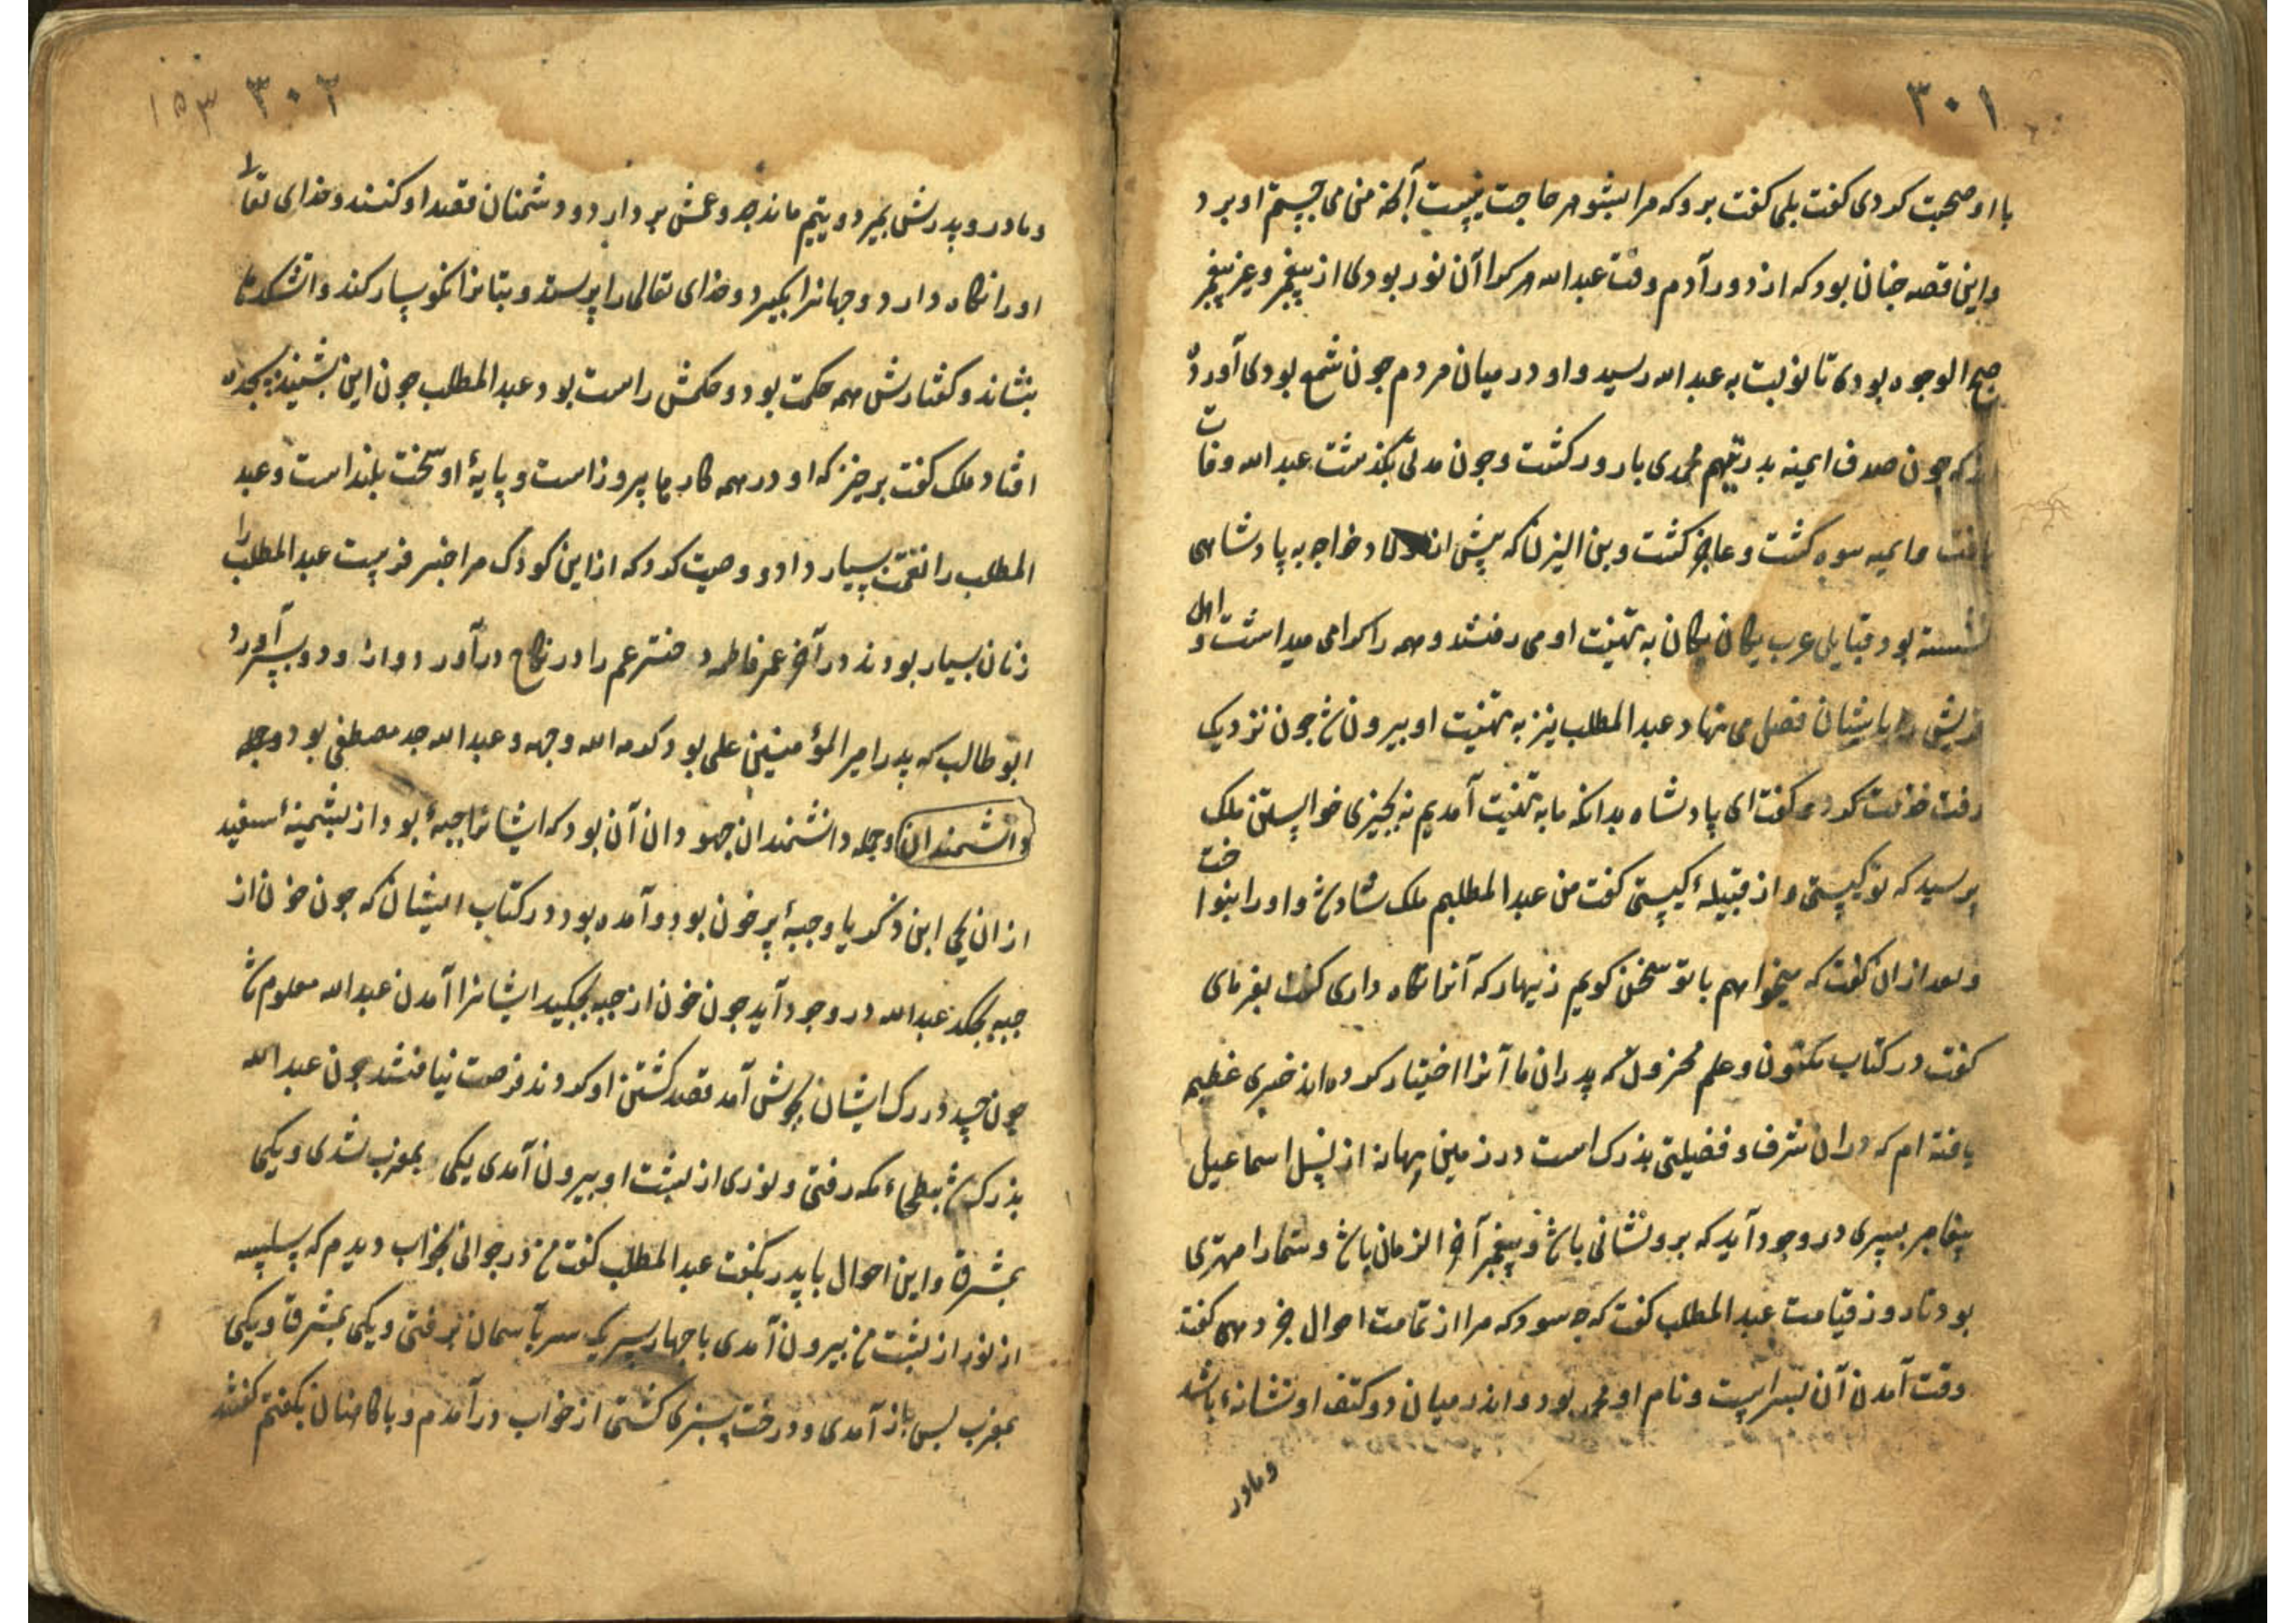 ۳۰۱
با او صحبت کردی کفت بلی کفت برو که مرا بشوهر حاجت نیست آنچه من می جستم او برد
و این قصه جنان بود که از دور آدم وقت عبد الله هر کرا آن نور بودی از پیغمبر و غیر پیغمبر
صبیح الوجوه بودی تا نوبت به عبد الله رسید و او در میان مردم جون شمع بودی آورده
اند که جون صدف ایمنه بدر یتیم محمدی بارور کشت و جون مدتی بکذشت عبد الله وفات
یافت و ایمنه بیوه کشت و عاجز کشت و بن الیزن که پیش او خواجه به پادشاهی
نشسته بود قبایل عرب یکان یکان به تهنیت او می رفتند و همه را کرامی میداشت و اهل
قریش را بایشان فضل می نهاد عبد المطلب نیز به تهنیت او بیرون شد جون نزدیک
رفت خدمت کرد و کفت ای پادشاه بدانکه ما به تهنیت آمدیم نه بجیزی خواستن ملک
پرسید که تو کیستی و از قبیلهٔ کیستی کفت من عبد المطلبم ملک شاد شد و او را بنواخت
و بعد ازان کفت که میخواهم با تو سخن کویم زنهار که آنرا نکاه داری کفت بفرمای
کفت در کتاب مکنون و علم مخزون که پدران ما آنرا اختیار کرده اند خبری عظیم
یافته ام که دران شرف و فضیلتی بزرک است در زمین تهامه از نسل اسماعیل
پیغامبر پسری در وجود آید که برو نشانی باشد و پیغمبر آخر الزمان باشد و شما را مهتری
بود تا روز قیامت عبد المطلب کفت که جه سود که مرا از تمامت احوال خبر دهی کفت
وقت آمدن آن پسر است و نام او محمد بود و اندر میان دو کتف او نشانهٔ باشد
و مادر
۳۰۲ ۱۵۳
و مادر و پدرش بمیرد و یتیم ماند جد و عمش بردارد و دشمنان قصد او کنند و خدای تعالی
او را نکاه دارد و جهانرا بکیرد و خدای تعالی را پرستد و بتانرا نکوسار کند و اتشکدها
بنشاند و کفتارش همه حکمت بود و حکمش راست بود عبد المطلب جون این بشنید بسجده
افتاد ملک کفت برخیز که او در همه کارها پیروز است و پایهٔ او سخت بلند است و عبد
المطلب را نعمت بسیار داد و وصیت کرد که از این کودک مرا خبر فرست عبد المطلب را
زنان بسیار بودند در آخر عمر فاطمه دختر عم را در نکاح در آورد و ازو دو پسر آورد
ابو طالب که پدر امیر المؤمنین علی بود کرمه الله وجهه و عبد الله جد مصطفی بود و جمله
دانشمندان و جمله دانشمندان جهودان آن بود که ایشانرا جبهٔ بود از پشمینهٔ سفید
ازان یحیی ابن ذکریا و جبهٔ پرخون بود و آمده بود در کتاب ایشان که جون خون از
جبه بجکد عبد الله در وجود آید جون خون از جبه بجکید ایشانرا آمدن عبد الله معلوم شد
جون حسد در رک ایشان بجوش آمد قصد کشتن او کردند فرصت نیافتند جون عبد الله
بزرک شد ببطحاء مکه رفتی و نوری از پشت او بیرون آمدی یکی بمغرب شدی و یکی
بمشرق و این احوال با پدر بکفت عبد المطلب کفت من در جوانی بخواب دیدم که سلسله
از نور از پشت من بیرون آمدی با جهار سر یک سر بآسمان برفتی و یکی بمشرق و یکی
بمغرب پس باز آمدی و درخت سبزی کشتی از خواب در آمدم و با کاهنان بکفتم کفتند